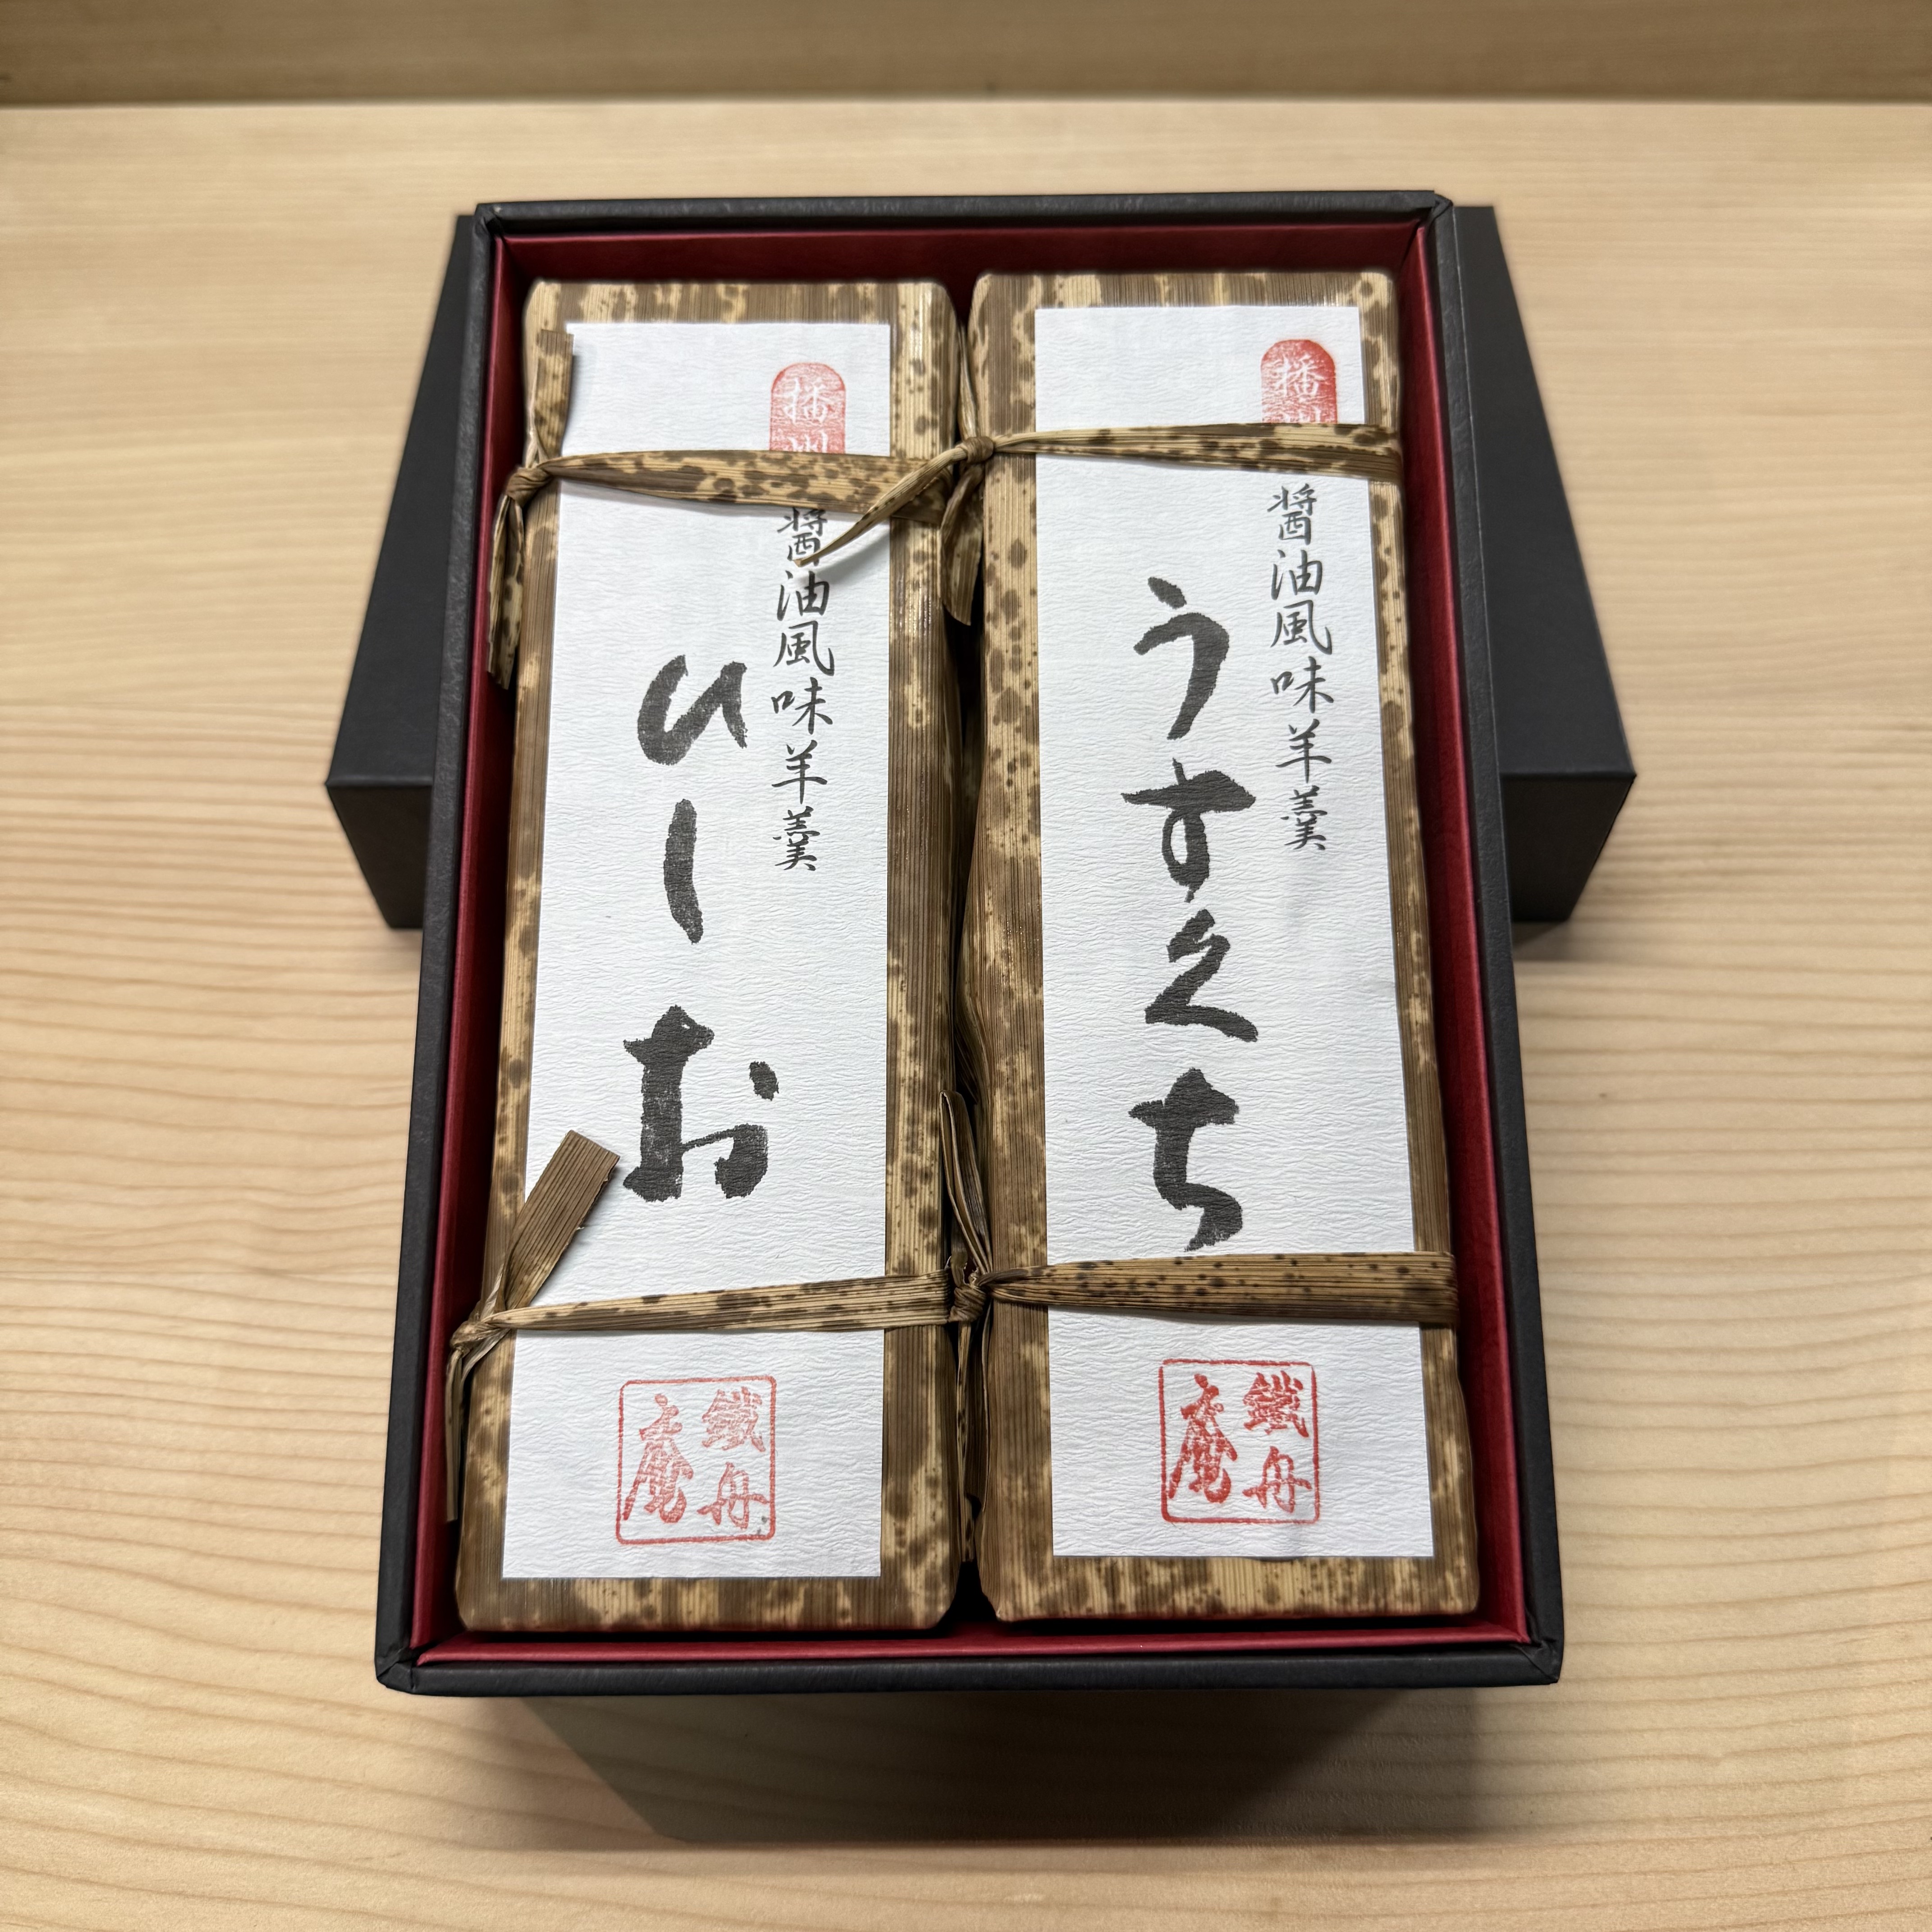 播州
醤油風味羊羹
うすくち
鐵舟庵
播州
醤油風味羊羹
ひしお
鐵舟庵